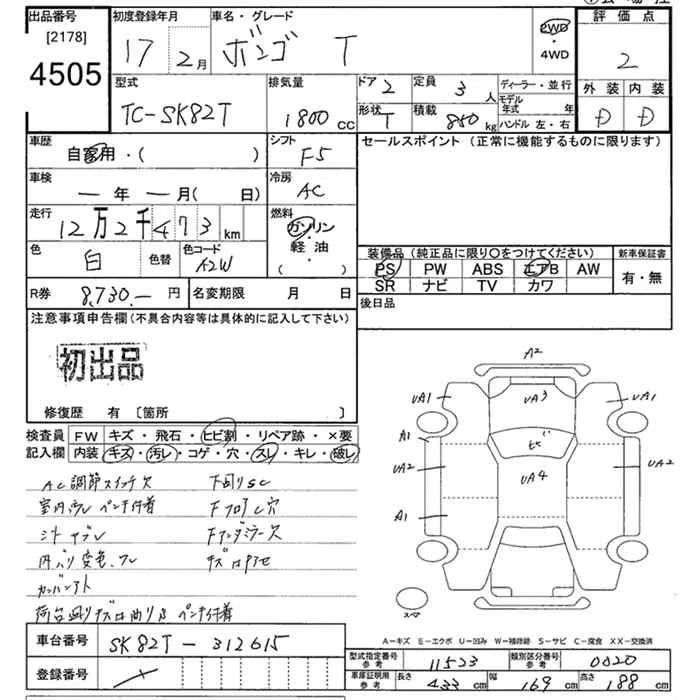 出品番号
[2178]
4505
初度登録年月
17 2月
車名・グレード
ボンゴ T
2WD
・
4WD
評価点
2
型式
TC-SK82T
排気量
1800 cc
ドア 2
定員 3 人
形状 T
積載 850 kg
ディーラー・並行
モデル年式 年
ハンドル 左・右
外装 内装
D D
車歴
自家用・( )
シフト
F5
セールスポイント (正常に機能するものに限ります)
車検
― 年 ― 月( 日)
冷房
AC
走行
12万2千473 km
燃料
ガソリン
・
軽油
( )
色
白
色替
色コード
A2W
装備品 (純正品に限り〇をつけてください)
PS PW ABS エアB AW
SR ナビ TV カワ
新車保証書
有・無
R券 8,730.― 円
名変期限 月 日
後日品
注意事項申告欄(不具合内容等は具体的に記入して下さい)
初出品
修復歴 有 〔箇所 〕
検査員 FW キズ・飛石・ヒビ割・リペア跡・×要
記入欄 内装 キズ・汚レ・コゲ・穴・スレ・キレ・破レ
AC調節スイッチ欠
下回りSC
ペンキ付着
Fフロア穴
Fアンダミラー欠
ペンキ付着
A2
UA1
UA3
UA1
A1
ヒビ
UA2
UA4
UA2
A1
スペア
A=キズ E=エクボ U=凹み W=補修跡 S=サビ C=腐食 XX=交換済
車台番号 SK82T-312615
登録番号
型式指定番号
参考
11523
類別区分番号
参考
0020
車庫証明用
参考
長さ 433 cm
幅 169 cm
高さ 188 cm